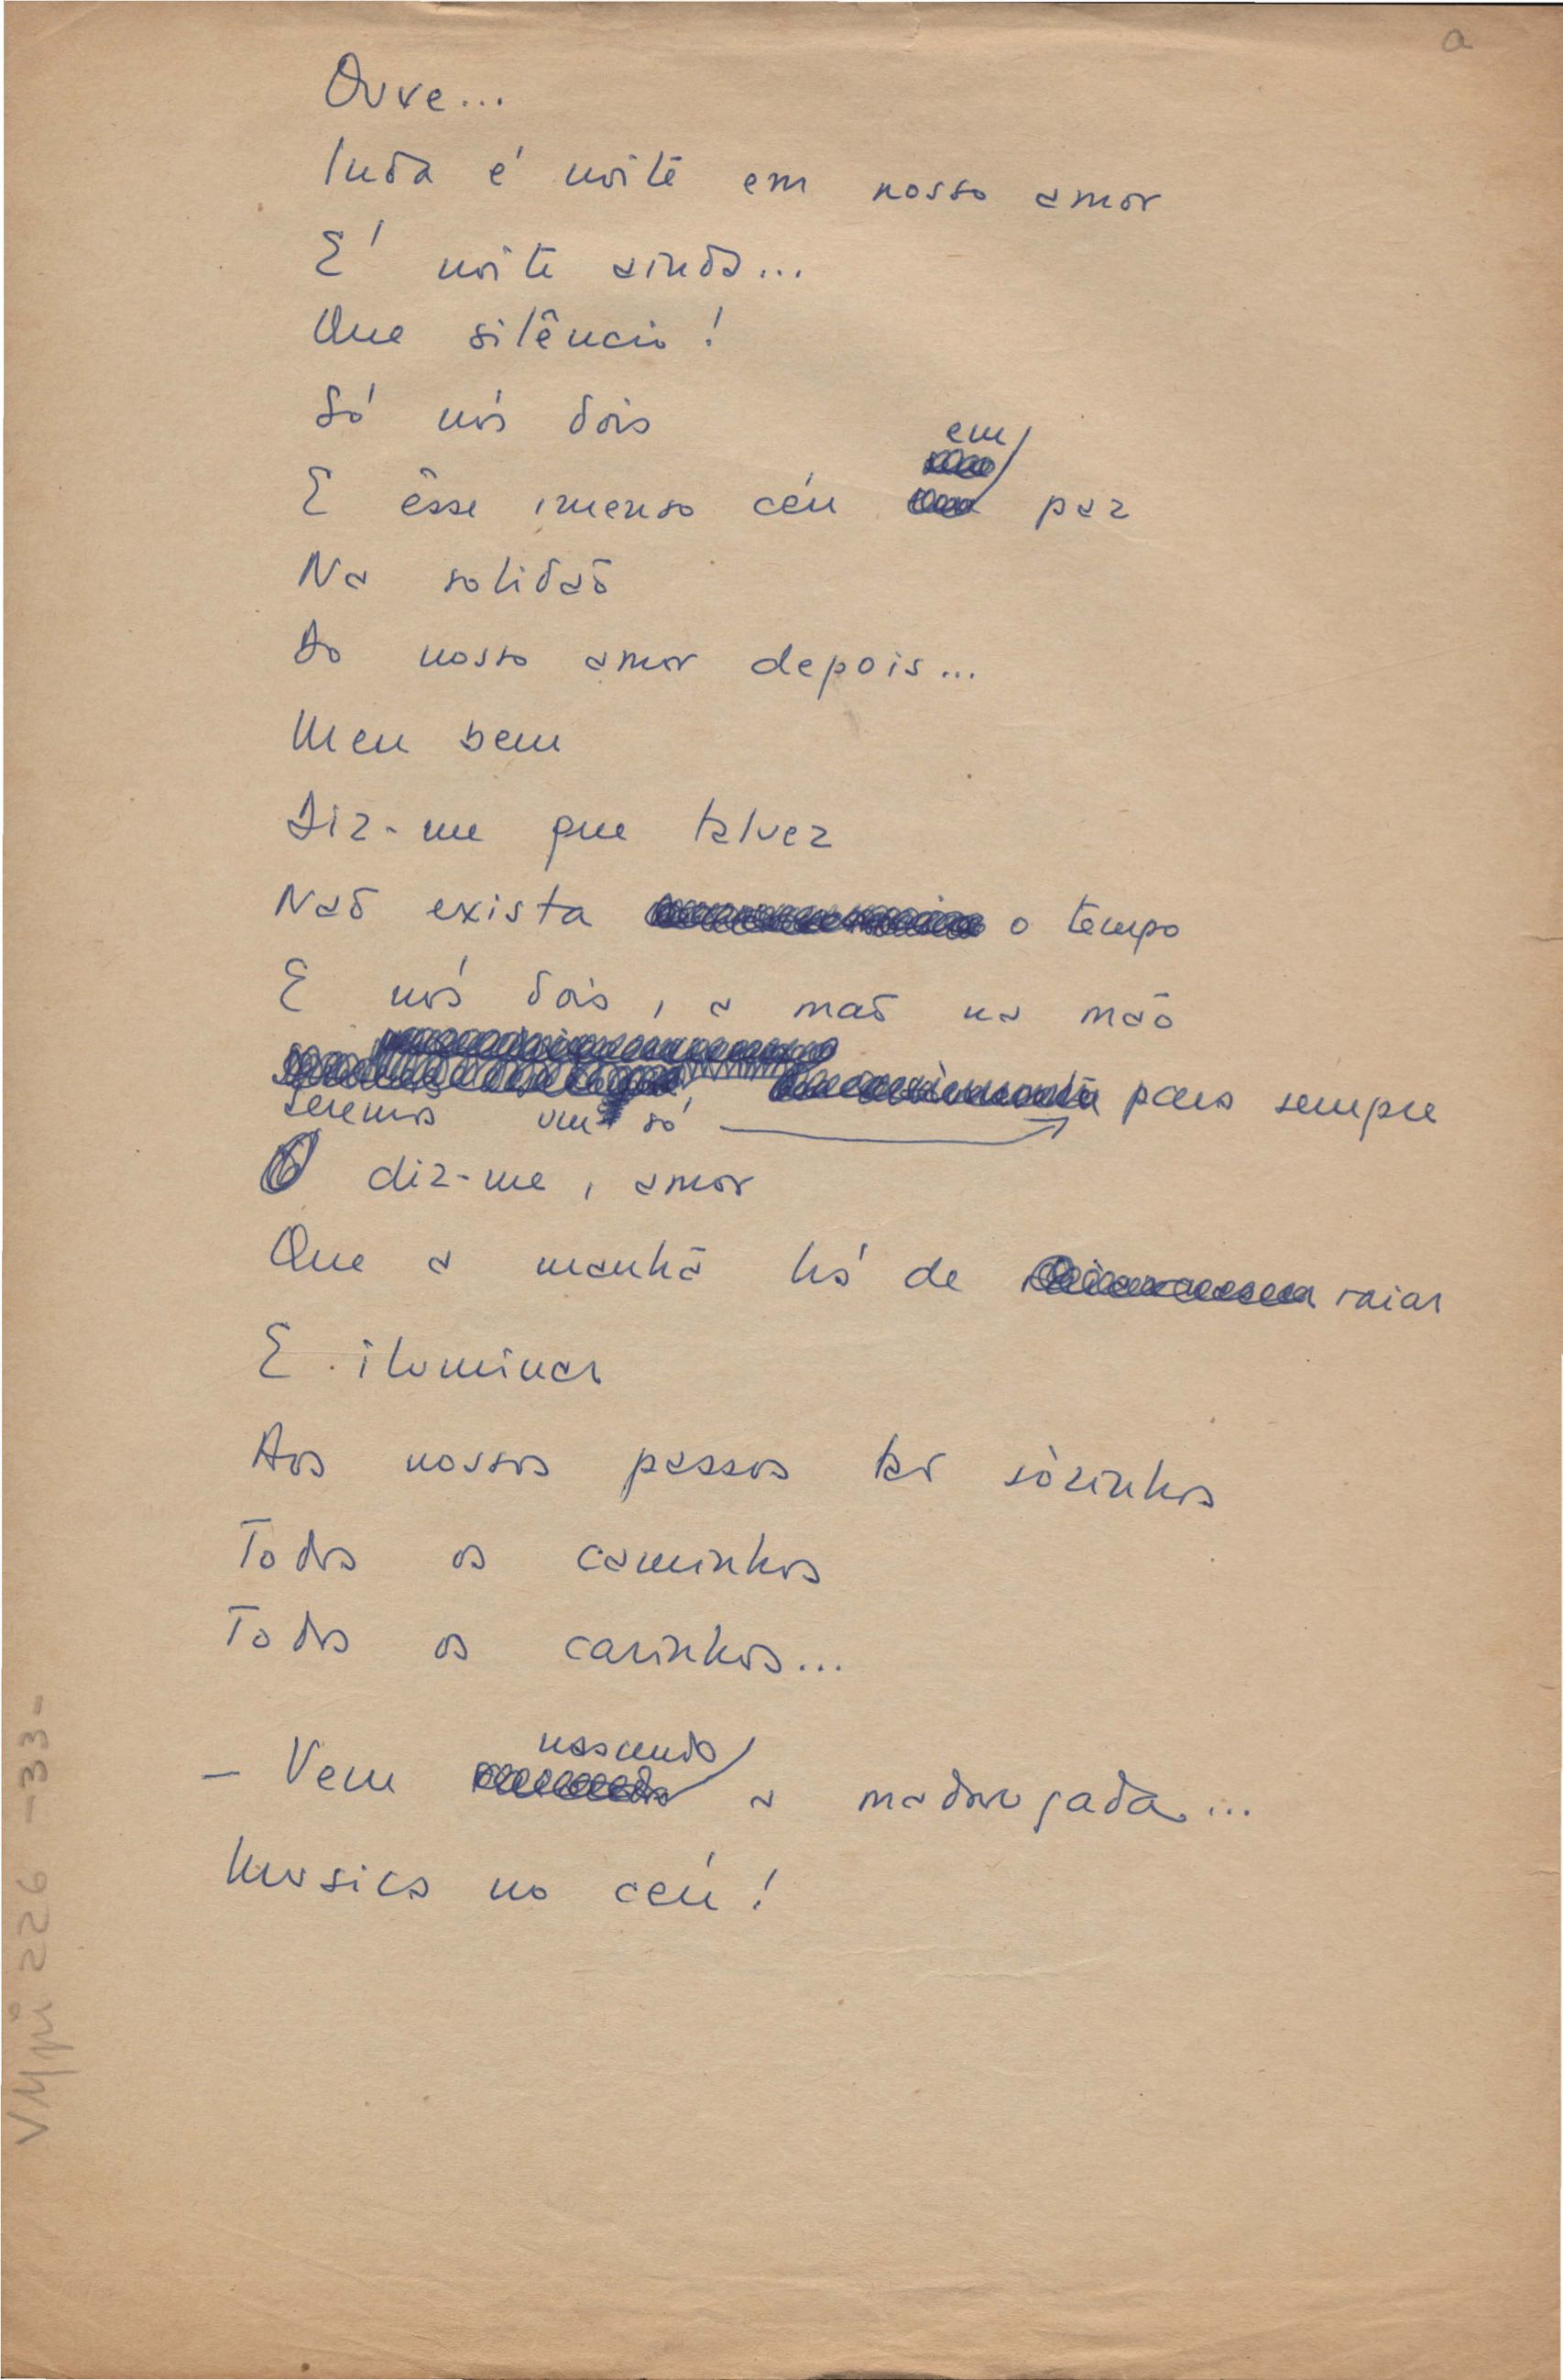 a
Ouve...
Inda é noite em nosso amor
É noite ainda...
Que silêncio!
Só nós dois
E êsse imenso céu em paz
Na solidão
Do nosso amor depois...
Meu bem
Diz-me que talvez
Não exista o tempo
E nós dois, a mão na mão
Seremos um só para sempre
O diz-me, amor
Que a manhã há de raiar
E iluminar
Aos nossos passos tão sòzinhos
Todos os caminhos
Todos os carinhos...
- Vem nascendo a madrugada...
Musica no céu!
VMpi 226 -33-